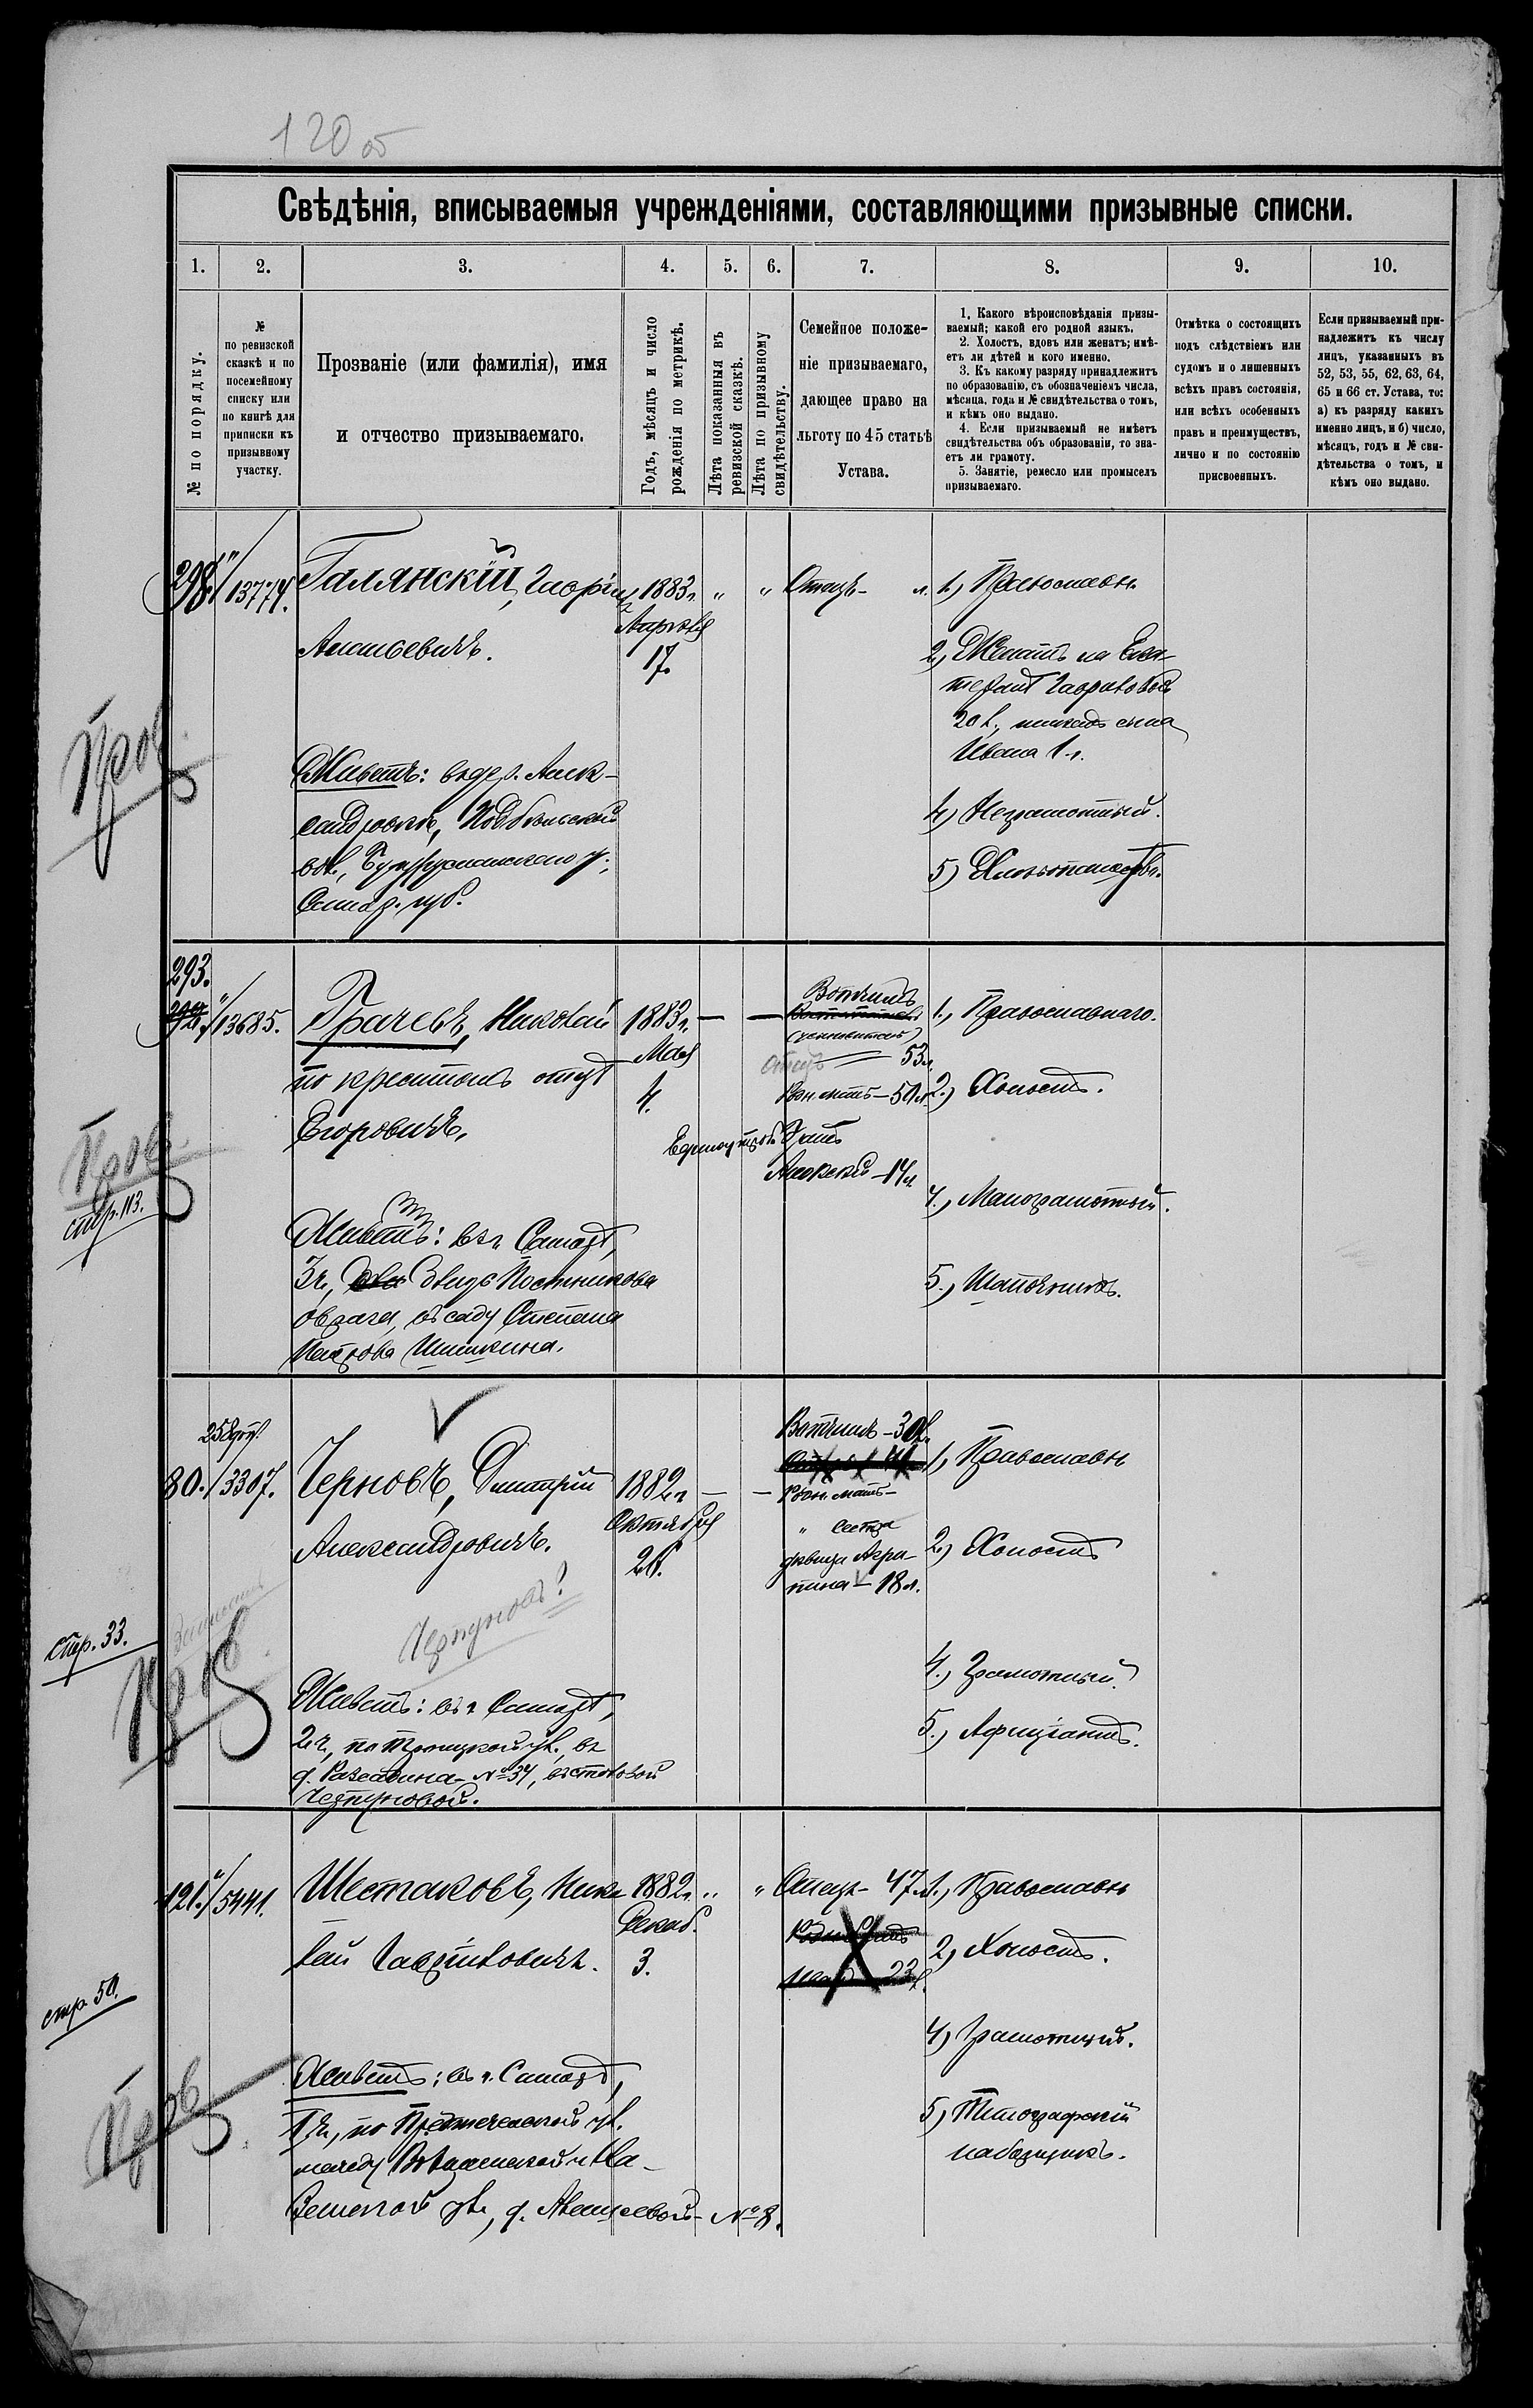 120 об
Свѣдѣнія, вписываемыя учрежденіями, составляющими призывные списки.
1. 2. 3. 4. 5. 6. 7. 8. 9. 10.
№ по порядку.
№
по ревизской
сказкѣ и по
посемейному
списку или
по книгѣ для
приписки къ
призывному
участку.
Прозваніе (или фамилія), имя
и отчество призываемаго.
Годъ, мѣсяцъ и число
рожденія по метрикѣ.
Лѣта показанныя въ
ревизской сказкѣ.
Лѣта по призывному
свидѣтельству.
Семейное положе-
ніе призываемаго,
дающее право на
льготу по 45 статьѣ
Устава.
1. Какого вѣроисповѣданія призы-
ваемый; какой его родной языкъ.
2. Холостъ, вдовъ или женатъ; имѣ-
етъ ли дѣтей и кого именно.
3. Къ какому разряду принадлежитъ
по образованію, съ обозначеніемъ числа,
мѣсяца, года и № свидѣтельства о томъ,
и кѣмъ оно выдано.
4. Если призываемый не имѣетъ
свидѣтельства объ образованіи, то зна-
етъ ли грамоту.
5. Занятіе, ремесло или промыселъ
призываемаго.
Отмѣтка о состоящихъ
подъ слѣдствіемъ или
судомъ и о лишенныхъ
всѣхъ правъ состоянія,
или всѣхъ особенныхъ
правъ и преимуществъ,
лично и по состоянію
присвоенныхъ.
Если призываемый при-
надлежитъ къ числу
лицъ, указанныхъ въ
52, 53, 55, 62, 63, 64,
65 и 66 ст. Устава, то:
а) къ разряду какихъ
именно лицъ, и б) число,
мѣсяцъ, годъ и № сви-
дѣтельства о томъ, и
кѣмъ оно выдано.
298. 13774.
Галянскій, Георгій
1883 г.
Апрѣля
17.
Отецъ-
1) Православн.
2) Женатъ на Ека-
20 л.,
сына
Ивана 1 г.
4) Неграмотный.
5) Хлѣбопашеств.
Живетъ: въ дер. Алек-
сандровкѣ,
вол., Бугурусланскаго у.,
Самар. губ.
Пров.
293.
13685.
Грачевъ, Николай
по крестномъ отцѣ
Егоровичъ.
1883 г.
Мая
4.
Вотчимъ
(усыновитель)
Отецъ 53 л.
Родн. мать - 50 л.
Единоутроб. братъ
Алексѣй - 14 л.
1., Православнаго.
2.) Холостъ.
4., Малограмотный.
5., Шапочникъ.
Живетъ: въ г. Самарѣ,
3 ч., близъ Постникова
оврага, въ саду Степана
Петрова Шишкина.
Пров.
стр. 113.
80. 3307.
Черновъ, Димитрій
Александровичъ.
1882 г.
Октября
26.
Вотчимъ - 30 л.
Родн. мать -
" сестра
дѣвица Агри-
пина - 18 л.
1., Православн
2., Холостъ
4., Грамотный
5., Афиціантъ.
Чертуновъ?
Живетъ: въ г. Самарѣ,
2 ч., по Троицкой ул., въ
д. № 37, въ столовой
Чертуновой.
стр. 33.
Пров.
121. 5441.
Шестаковъ, Нико
лай Гавріиловичъ.
1882 г.
Декаб.
3.
Отецъ - 47 л.
1., Православн
2., Холостъ.
4) Грамотный.
5) Типографскій
наборщикъ.
Живетъ: въ г. Самарѣ,
1 ч., по Предтеченской ул.
между Вознесенской и Ка-
занской ул., д. № 8.
стр. 50.
Пров.